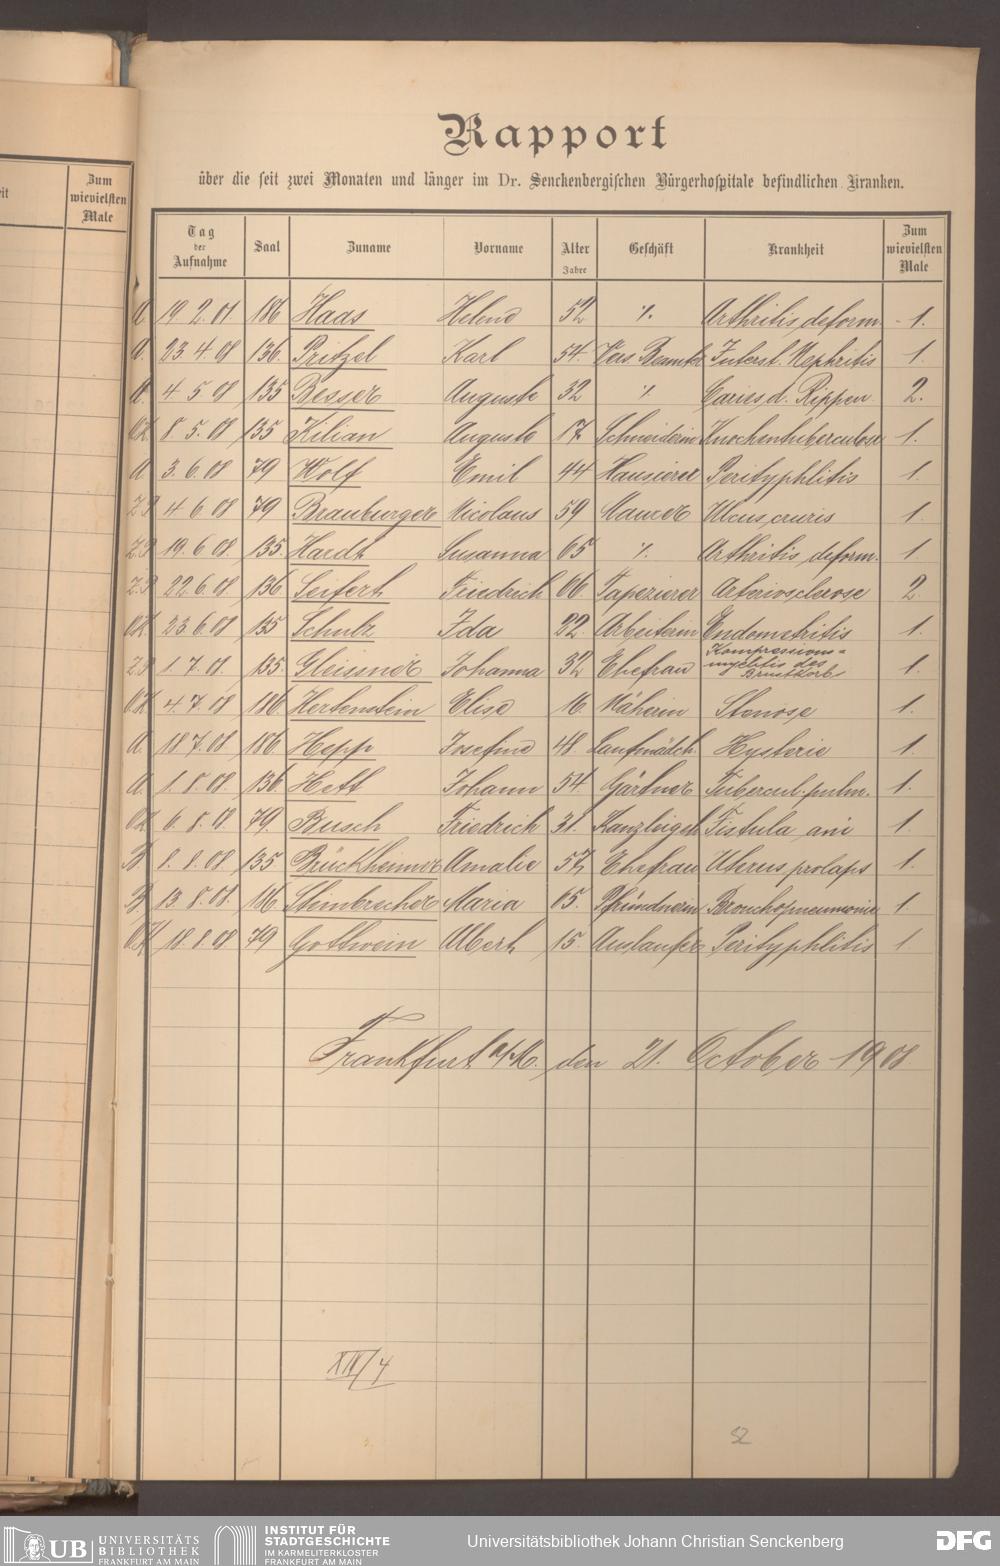 Rapport
über die seit zwei Monaten und länger im Dr. Senckenbergischen Bürgerhospitale befindlichen Kranken.
Zum wievielsten Male
Tag der Aufnahme Saal Zuname Vorname Alter Jahre Geschäft Krankheit Zum wievielsten Male
A 19 2. 01 186 Haas Helene 52 ٪. Arthritis deform. 1.
A. 23 4. 08 136. Pritzel Karl 54. Vers. Beamter Interst. Nephritis 1.
A. 4 5 08 135 Besser Auguste 32 ٪ Caries d. Rippen 2.
OK 8. 5. 08 135 Kilian Auguste 17. Schneiderin Knochentuberculose 1.
A 3. 6. 08 79 Wolf Emil 44 Hausierer Perityphlitis 1.
Z.P 4 6 08 79 Brauburger Nicolaus 59 Maurer Ulcus cruris 1
Z.P 19. 6 08. 135. Hardt Susanna 65 ٪. Arthritis deform. 1.
Z.P 22. 6. 08 136 Seifert Friedrich 66 Tapezierer Arteriosclerose 2.
OK 23 6. 08 135 Schulz Ida 22. Arbeiterin Endometritis 1.
Z.P 1. 7. 08. 135. Gleissner Johanna 32 Ehefrau Kompressions=
myelitis des
Brustkorb
1.
O.K 4. 7. 08 186 Hertenstein Elise 16. Näherin Stenose 1.
A. 18 7. 08 186. Hepp Josefine 48. Laufmädch. Hysterie 1.
A. 1. 8. 08. 136. Hett Johann 54. Gärtner Tubercul. pulm. 1.
OK 6. 8. 08. 79. Busch Friedrich 31. Kanzleigeh Fistula ani 1.
B 8. 8. 08 135 Brückheimer Amalie 57. Ehefrau Uterus prolaps 1.
B 13. 8. 08. 186 Steinbrecher Maria 65. Pfründnerin Bronchopneumonie 1.
OK 18. 8. 08 79 Gottwein Albert 15. Auslaufer Perityphlitis 1
Frankfurt a/M. den 21. October 1908
XIV/4
52
UB UNIVERSITÄTS BIBLIOTHEK FRANKFURT AM MAIN
INSTITUT FÜR STADTGESCHICHTE IM KARMELITERKLOSTER FRANKFURT AM MAIN
Universitätsbibliothek Johann Christian Senckenberg
DFG